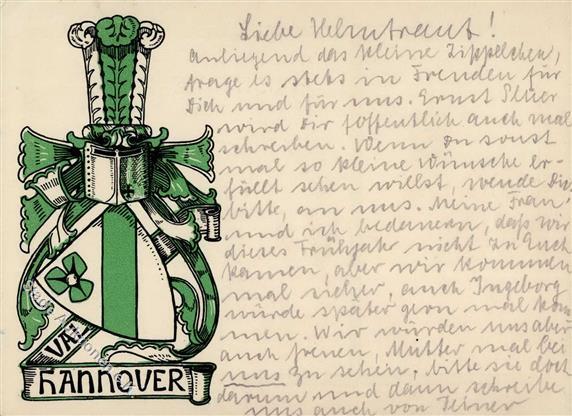 Liebe Helmtraut!
Anliegend das kleine Zippelchen,
trage es stets in Freuden für
Dich und für uns. Ernst
wird Dir hoffentlich auch mal
schreiben. Wenn Du sonst
mal so kleine Wünsche er-
füllt sehen willst, wende Dich
bitte, an uns. Meine Frau
und ich bedauern, daß wir
dieses Frühjahr nicht zu Euch
kamen, aber wir kommen
mal sicher, auch Ingeborg
würde später gern mal kom-
men. Wir würden uns aber
auch freuen, Mutter mal bei
uns zu sehen, bitte sie doch
darum und dann schreibe
uns auch von
VAL
HANNOVER